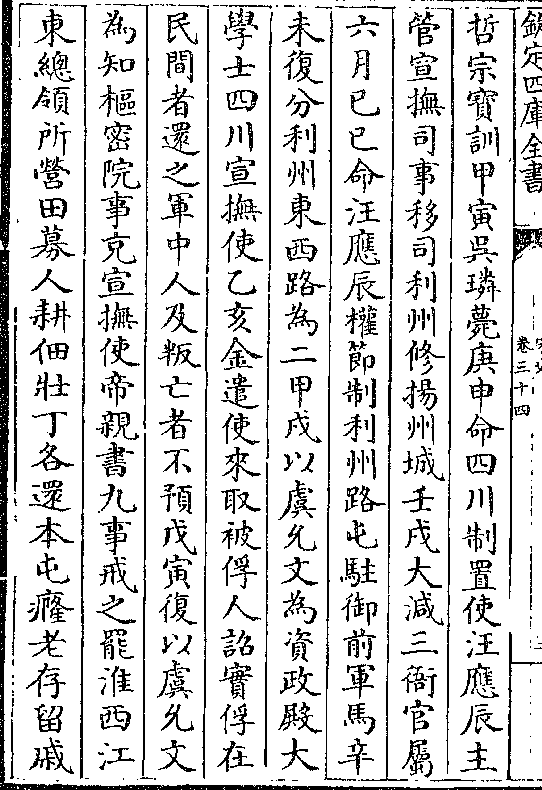 欽定四庫全書
卷三十四
哲宗寶訓甲寅吳璘薨庚申命四川制置使汪應辰主
管宣撫司事移司利州修揚州城壬戌大減三衙官屬
六月己巳命汪應辰權節制利州路屯駐御前軍馬辛
未復分利州東西路為二甲戌以虞允文為資政殿大
學士四川宣撫使乙亥金遣使來取被俘人詔實俘在
民間者還之軍中人及叛亡者不預戊寅復以虞允文
為知樞密院事充宣撫使帝親書九事戒之罷淮西江
東總領所營田募人耕佃壯丁各還本屯癃老存留戚